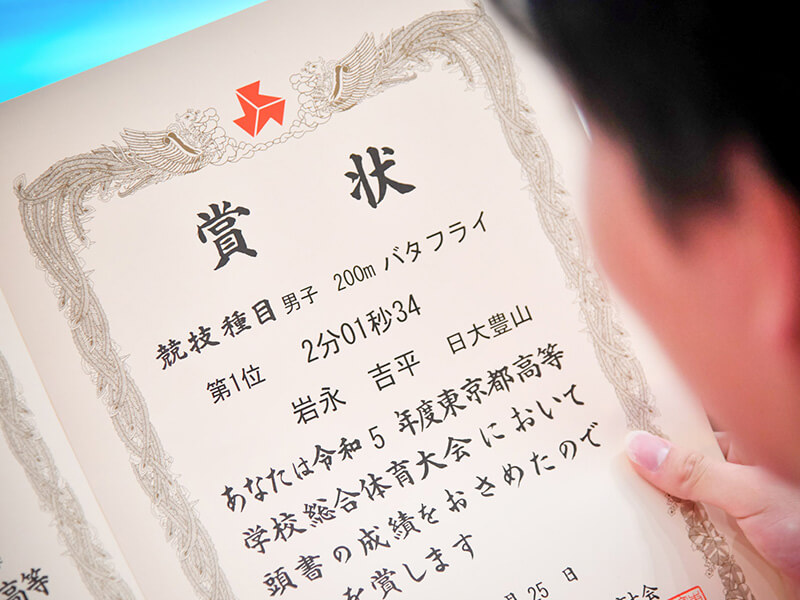 賞状
競技種目 男子 200m バタフライ
第1位 2分01秒34
岩永 吉平 日大豊山
あなたは令和5年度東京都高等
学校総合体育大会において
頭書の成績をおさめたので
を賞します
月25日
会
高等